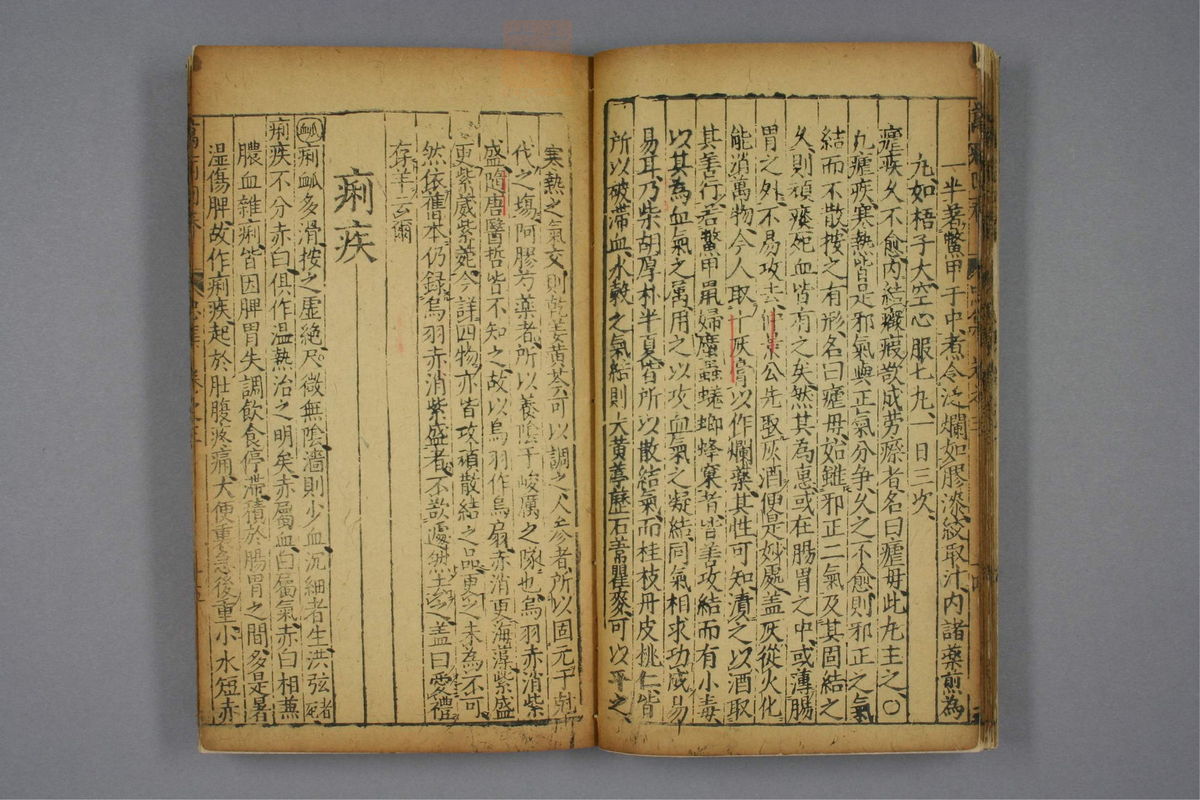 一半著鱉甲于中煮令泛爛如膠漆絞取汁内諸藥煎為
丸如梧子大空心服七丸一日三次
瘧疾久不愈内結癥瘕欲成勞瘵者名曰瘧母此丸主之〇
凡瘧疾寒熱皆是邪氣與正氣分争久之不愈則邪正之氣
結而不散按之有形名曰瘧母始雖邪正二氣及其固結之
久則頑痰死血皆有之矣然其為患或在腸胃之中或薄腸
胃之外不易攻去仲景公先取灰酒便是妙處蓋灰從火化
能消萬物今人取灰以作爛藥其性可知漬之以酒取
其善行若鱉甲鼠婦䗪蟲蜣螂蜂窠者皆善攻結而有小毒
以其為血氣之屬用之以攻血氣之凝結同氣相求功成易
易耳乃柴胡厚朴半夏皆所以散結氣而桂枝丹皮桃仁皆
所以破滯血水穀之氣結則大黄葶藶石葦瞿麥可以平之
寒熱之氣交則乾姜黄芩可以調之人參者所以固元于
伐之場阿膠芍藥者所以養陰于峻厲之隊也烏羽赤消紫
盛隋唐醫哲皆不知之故以烏羽作烏扇赤消更海藻紫盛
更紫葳紫菀今詳四物亦皆攻頑散結之品更之未為不可
然依舊本仍録烏羽赤消紫盛者不欲遽然去之蓋曰愛禮
存羊云爾
痢疾
痢脈多滑按之虚絶尺微無陰濇則少血沉細者生洪弦者死
痢疾不分赤白俱作温熱治之明矣赤屬血白屬氣赤白相兼
膿血雜痢皆因脾胃失調飲食停滯積於腸胃之間多是暑
湿傷脾故作痢疾起於肚腹疼痛大便重急後重小水短赤